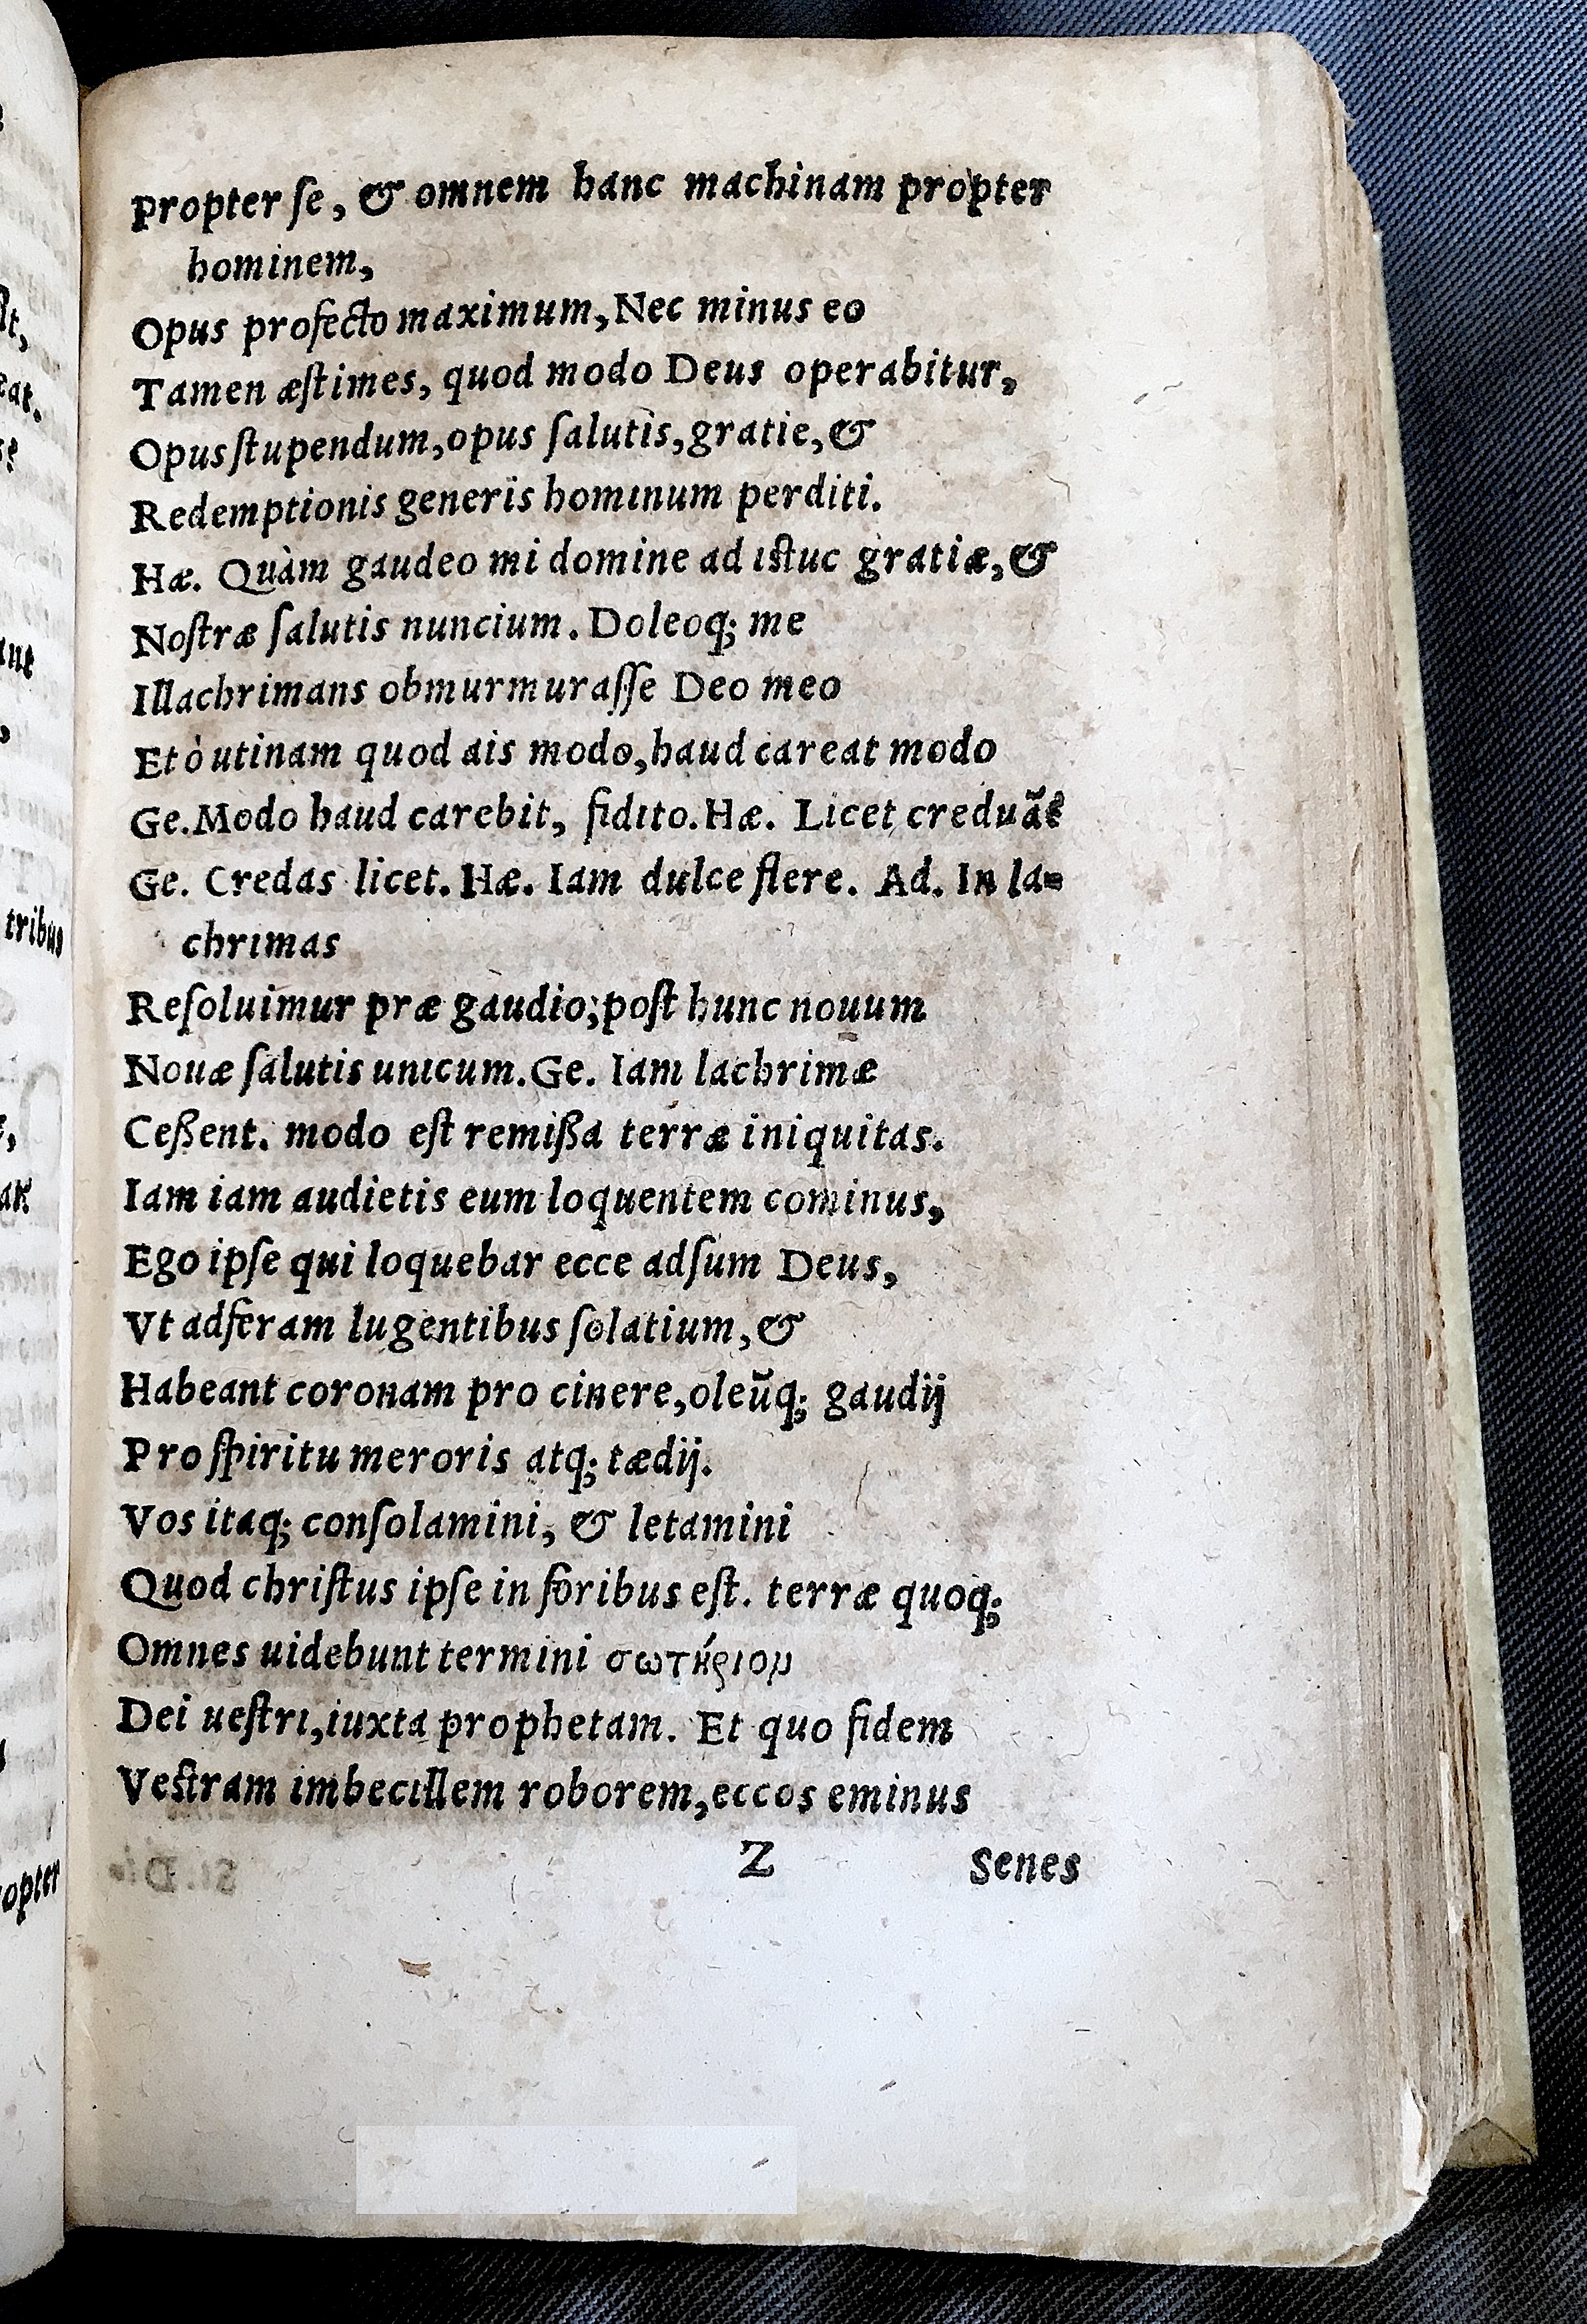 propter ſe, & omnem hanc machinam propter
hominem,
Opus profecto maximum, Nec minus eo
Tamen æſtimes, quod modo Deus operabitur,
Opus ſtupendum, opus ſalutis, gratie, &
Redemptionis generis hominum perditi.
Hæ. Quàm gaudeo mi domine ad iſtuc gratiæ, &
Noſtræ ſalutis nuncium. Doleoq; me
Illachrimans obmurmuraſſe Deo meo
Et ò utinam quod ais modo, haud careat modo
Ge. Modo haud carebit, fidito. Hæ. Licet creduãs
Ge. Credas licet. Hæ. Iam dulce flere. Ad. In la-
chrimas
Reſoluimur præ gaudio; poſt hunc nouum
Nouæ ſalutis unicum. Ge. Iam lachrimæ
Ceßent. modo eſt remißa terræ iniquitas.
Iam iam audietis eum loquentem cominus,
Ego ipſe qui loquebar ecce adſum Deus,
Vt adferam lugentibus ſolatium, &
Habeant coronam pro cinere, oleũq; gaudij
Pro ſpiritu meroris atq; tædij.
Vos itaq; conſolamini, & letamini
Quod chriſtus ipſe in foribus eſt. terræ quoq;
Omnes uidebunt termini σωτήριον
Dei ueſtri, iuxta prophetam. Et quo fidem
Veſtram imbecillem roborem, eccos eminus
Z Senes
tribus
opter